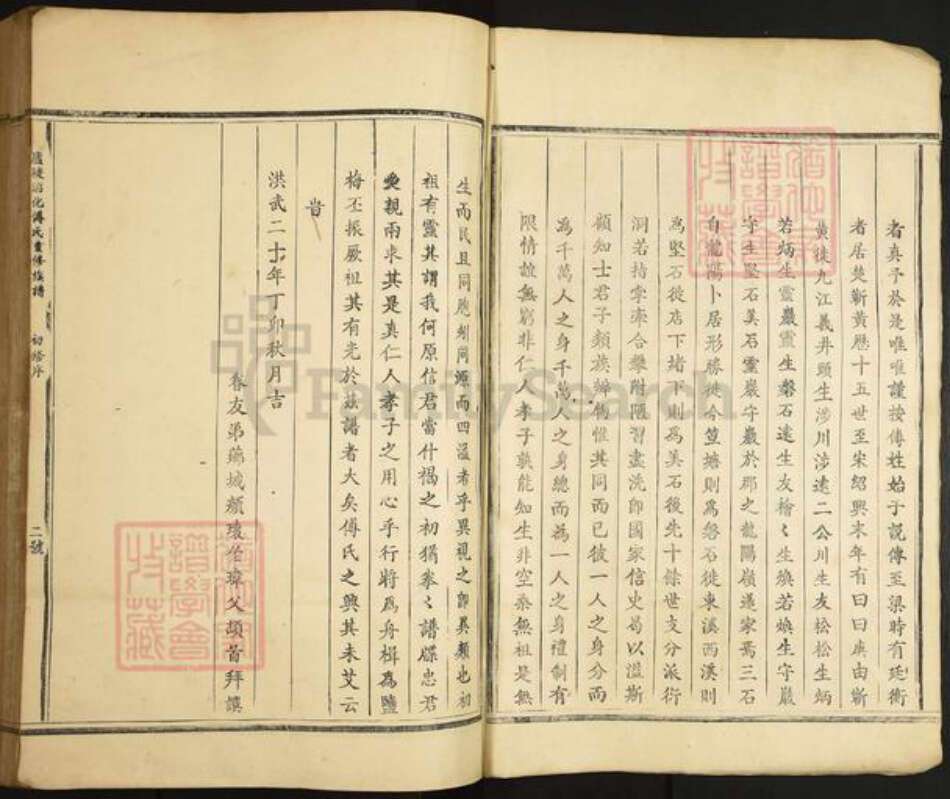 者真予於是唯唯謹按傅姓始于說傳至梁時有延衛
者居楚蘄黃歷十五世至宋紹興末年有曰曰庾由蘄
黃徙九江義井頭生涉川涉遠二公川生友松松生炳
若炳生靈巖靈生磐石遠生友檜〻生煥若煥生守巖
守生堅石美石靈巖守巖於那之龍陽嶺遂家焉三石
自龍陽卜居形勝徙今笪塘則為磐石徙東溪西溪則
為堅石從店下堵下則為美石後先十餘世支分派行
洞若持牽合攀附陋習盡洗即國家信史曷以溢斯
顧知士君子類族歸僞惟其同而已彼一人之身分而
為千萬人之身千萬人之身總而為一人之身禮制有
限情誼無窮非仁人孝子孰能知生非空桑無祖是無
生而民且同胞矧同源而四溢者乎異視之即異類也初
祖有靈其謂我何原信君當什褐之初猶拳〻譜牒忠君
愛親兩求其是真仁人孝子之用心乎行將為舟楫為鹽
梅丕振厥祖其有光於茲譜者大矣傅氏之興其未艾云
旹
洪武二十年丁卯秋月吉
眷友弟蕪城頼瓊伯瑋父頓首拜譔
傅氏重修族譜
初修序
二號
FamilySearch